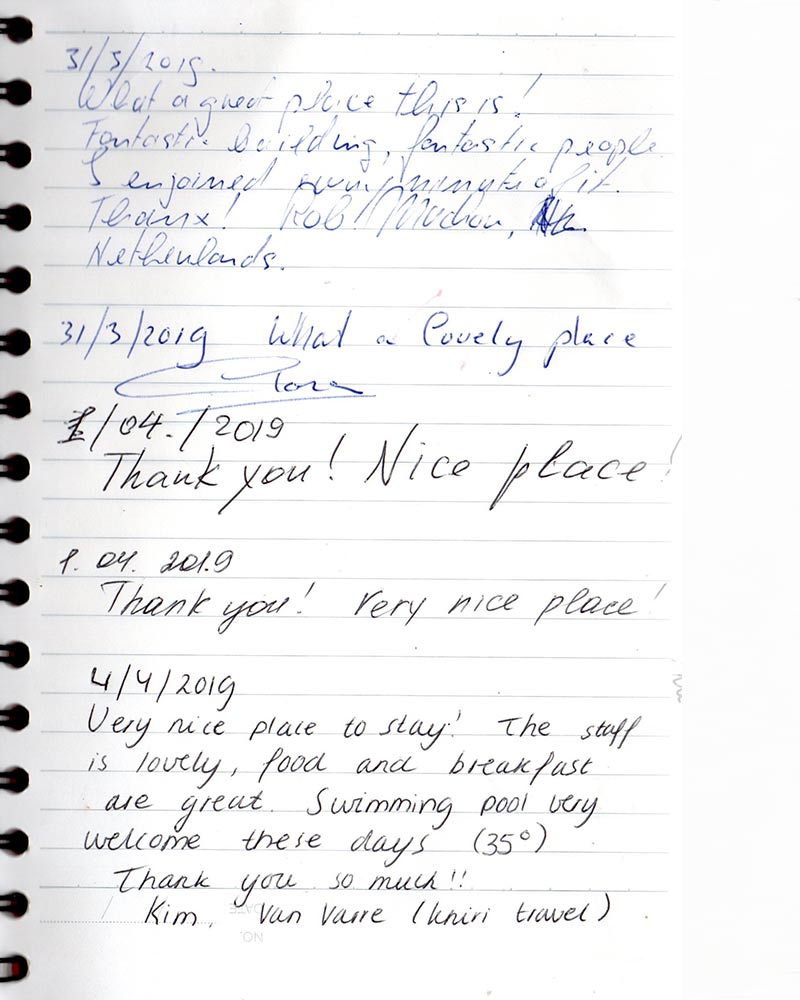 31/3/2019.
What a great place this is!
Fantastic building, fantastic people.
I enjoined every minute of it.
Thanx! Rob
Netherlands.
31/3/2019 What a lovely place
1/04./2019
Thank you! Nice place!
1. 04. 2019
Thank you! Very nice place!
4/4/2019
Very nice place to stay! The staff
is lovely, food and breakfast
are great. Swimming pool very
welcome these days (35°)
Thank you so much!!
Kim, Van Varre (khiri travel)
DATE
NO.